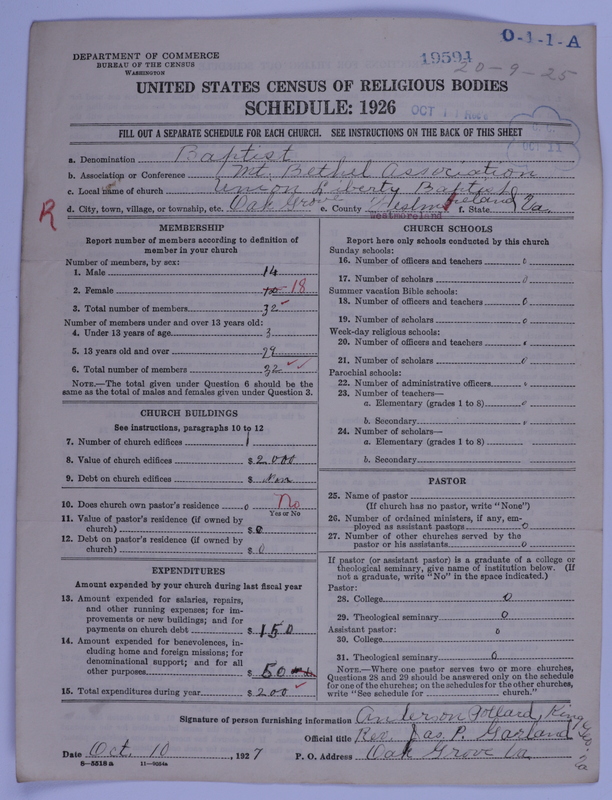 O-1-1-A
DEPARTMENT OF COMMERCE
BUREAU OF THE CENSUS
WASHINGTON
19594
20-9-25
UNITED STATES CENSUS OF RELIGIOUS BODIES
SCHEDULE: 1926
OCT
OCT 11
FILL OUT A SEPARATE SCHEDULE FOR EACH CHURCH. SEE INSTRUCTIONS ON THE BACK OF THIS SHEET
a. Denomination Baptist
b. Association or Conference Mt. Bethel Association
c. Local name of church Union Liberty Baptist
R
d. City, town, village, or township, etc. Oak Grove e. County Westmoreland f. State Va.
Westmoreland
MEMBERSHIP
Report number of members according to definition of
member in your church
Number of members, by sex:
1. Male 14
2. Female 18
3. Total number of members 32
Number of members under and over 13 years old:
4. Under 13 years of age 3
5. 13 years old and over 29
6. Total number of members 32
NOTE.—The total given under Question 6 should be the
same as the total of males and females given under Question 3.
CHURCH BUILDINGS
See instructions, paragraphs 10 to 12
7. Number of church edifices 1
8. Value of church edifices $ 2000
9. Debt on church edifices $ Non
10. Does church own pastor's residence 0 No
Yes or No
11. Value of pastor's residence (if owned by
church) $ 0
12. Debt on pastor's residence (if owned by
church) $ 0
EXPENDITURES
Amount expended by your church during last fiscal year
13. Amount expended for salaries, repairs,
and other running expenses; for im-
provements or new buildings; and for
payments on church debt $ 150
14. Amount expended for benevolences, in-
cluding home and foreign missions; for
denominational support; and for all
other purposes $ 50
15. Total expenditures during year $ 200
CHURCH SCHOOLS
Report here only schools conducted by this church
Sunday schools:
16. Number of officers and teachers 0
17. Number of scholars 0
Summer vacation Bible schools:
18. Number of officers and teachers 0
19. Number of scholars 0
Week-day religious schools:
20. Number of officers and teachers 0
21. Number of scholars 0
Parochial schools:
22. Number of administrative officers 0
23. Number of teachers—
a. Elementary (grades 1 to 8) 0
b. Secondary 0
24. Number of scholars—
a. Elementary (grades 1 to 8)
b. Secondary
PASTOR
25. Name of pastor
(If church has no pastor, write "None")
26. Number of ordained ministers, if any, em-
ployed as assistant pastors 0
27. Number of other churches served by the
pastor or his assistants 0
If pastor (or assistant pastor) is a graduate of a college or
theological seminary, give name of institution below. (If
not a graduate, write "No" in the space indicated.)
Pastor:
28. College 0
29. Theological seminary 0
Assistant pastor: 0
30. College
31. Theological seminary 0
NOTE.—Where one pastor serves two or more churches,
Questions 28 and 29 should be answered only on the schedule
for one of the churches; on the schedules for the other churches,
write "See schedule for church."
Signature of person furnishing information Anderson Pollard, King
Geo. Va
Official title Rev. Jas. P. Garland
Date Oct. 10, 1927 P. O. Address Oak Grove Va.
8-5518 a 11-9034a